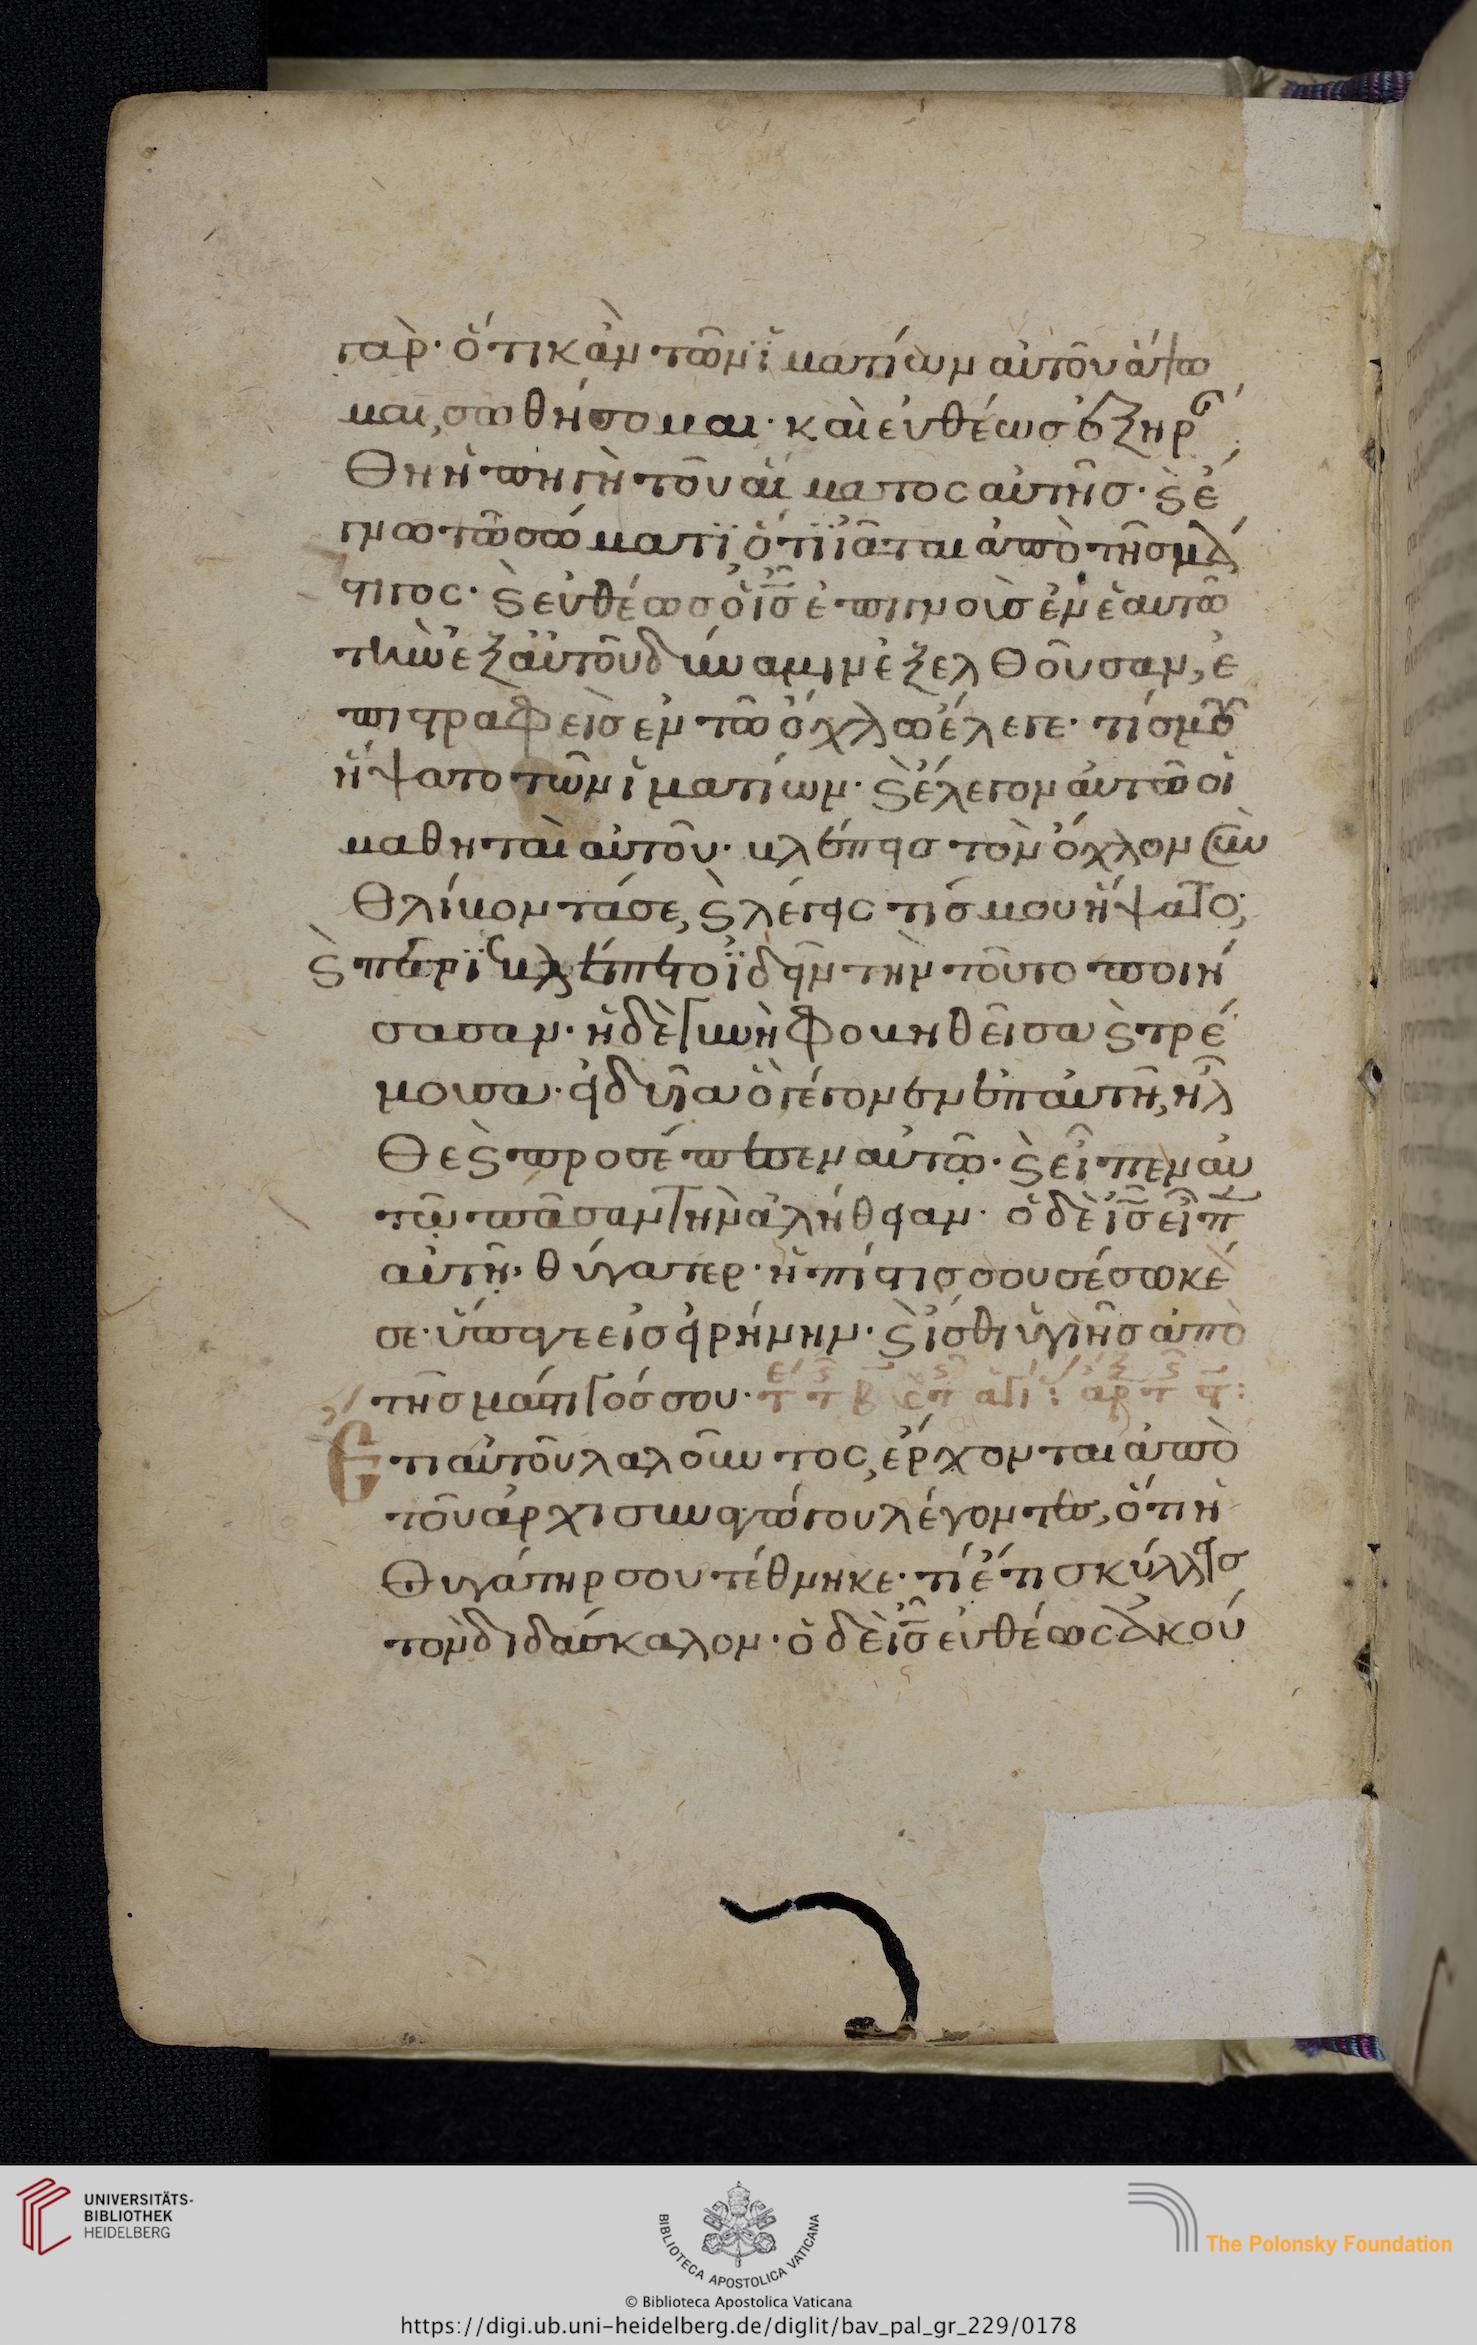 γὰρ· ὅτι κἂν τῶν ἱματίων αὐτοῦ ἅψω
μαι, σωθήσομαι· καὶ εὐθέως ἐξηράν
θη ἡ πηγὴ τοῦ αἵματος αὐτῆσ· ϗ ἔ
γνω τῶ σώματϊ, ὅτϊ ἴαται ἀπὸ τῆσ μά
στιγος· ϗ εὐθέωσ ὁ ἰ̅σ̅ ἐπιγνοὺσ ἐν ἑαυτῶ
τὴν ἐξ αὐτοῦ δύναμιν ἐξελθοῦσαν, ἐ
πιστραφεὶσ ἐν τῶ ὄχλω ἔλεγε· τίσ μου
ἥψατο τῶν ἱματίων· ϗ ἔλεγον αὐτῶ οἱ
μαθηταὶ αὐτοῦ· βλέπεισ τὸν ὄχλον συν
θλίβοντά σε, ϗ λέγεις τίσ μου ἥψατο;
ϗ περϊεβλέπετο ϊδεῖν τὴν τοῦτο ποιή
σασαν· ἡ δὲ γυνὴ φοβηθεῖσα ϗ τρέ
μουσα· εἰδυῖα ὃ γέγονεν ἐπ αὐτῆ, ἦλ
θε ϗ προσέπεσεν αὐτῶ· ϗ εἶπεν αὐ
τῶ πᾶσαν τὴν ἀλήθειαν· ὁ δὲ ἰ̅σ̅ εἶπεν
αὐτῆ· θύγατερ· ἡ πίστισ σου σέσωκέ
σε· ὕπαγε εἰσ εἰρήνην· ϗ ἴσθι ὑγιὴσ ἀπὸ
τῆσ μάστιγόσ σου·
Ετι αὐτοῦ λαλοῦντος, ἔρχονται ἀπὸ
τοῦ ἀρχισυναγώγου λέγοντεσ, ὅτι ἡ
θυγάτηρ σου τέθνηκε· τί ἔτι σκύλλεισ
τὸν διδάσκαλον· ὁ δὲ ἰ̅σ̅ εὐθέως ἀκού
UNIVERSITÄTS-
BIBLIOTHEK
HEIDELBERG
BIBLIOTECA APOSTOLICA VATICANA
The Polonsky Foundation
© Biblioteca Apostolica Vaticana
https://digi.ub.uni-heidelberg.de/diglit/bav_pal_gr_229/0178